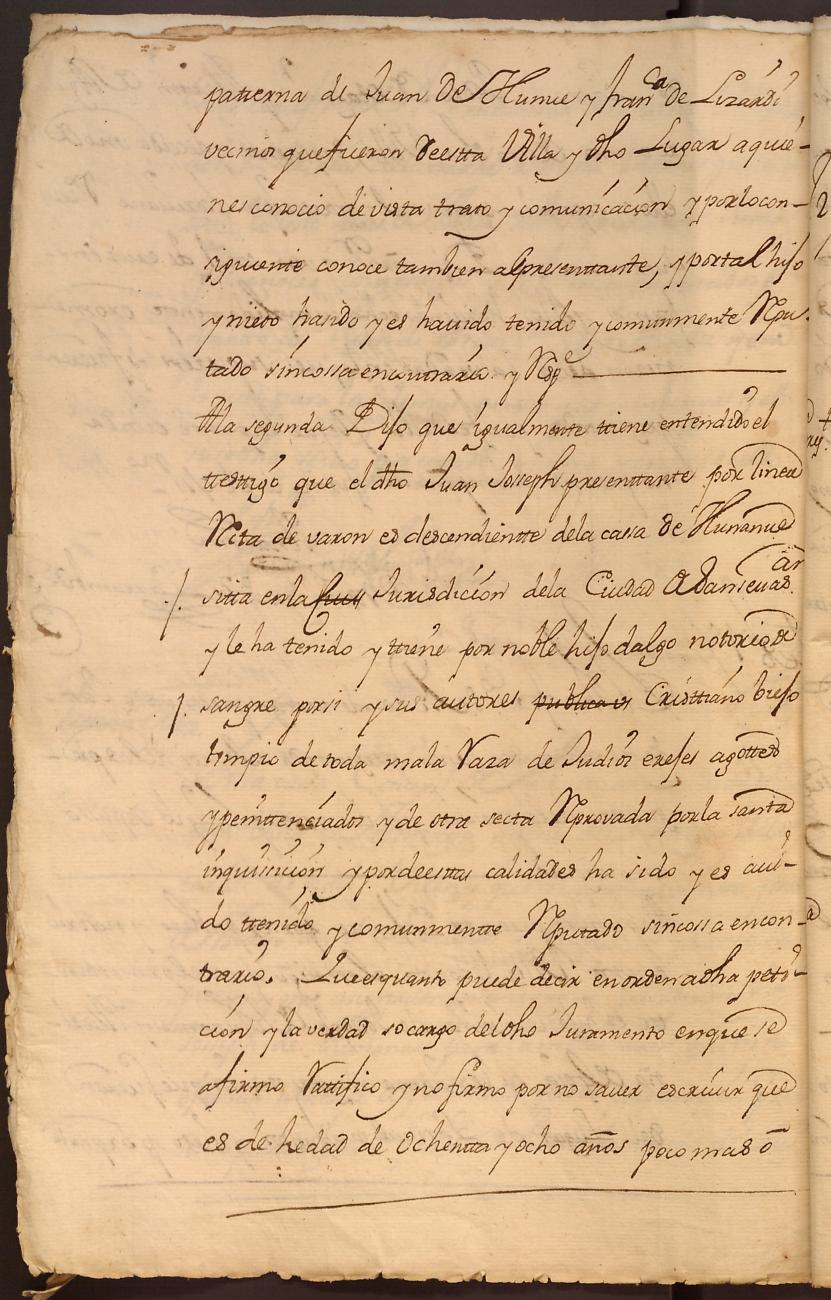 patterna de Juan de Hunue y Franca de Lizardi
vecinos que fueron de estta Villa y dho Lugar aquie-
nes conocio de vista trato y comunicacion y por lo con-
siguiente conoce tambien al presenttante, y por tal hijo
y nieto ha sido y es hauido tenido y comunmente Repu-
tado sin cossa en contrario y Rde
Ala segunda Dijo que igualmente tiene entendido el
testtigo que el dho Juan Joseph presenttante por linea
Recta de varon es descendientte de la cassa de Hunanue
sitta en la Jurisdicion de la Ciudad a Danseuas
ar
y le ha tenido y ttiene por noble hijo dalgo nottorio de
sangre por si y sus autores publica es Cristtiano biejo
limpio de toda mala Raza de Judios erejes agottes
y penittenciados y de otra secta Reprovada por la santta
inquisicion y por de esttas calidades ha sido y es aui-
do ttenido y comunmentte Reputado sin cossa en con-
trario. Que es quanto puede decir en orden a dha peti-
cion y la verdad so cargo del dho Juramento en que se
afirmo Rattifico y no firmo por no sauer escriuir que
es de hedad de ochentta y ocho años poco mas o